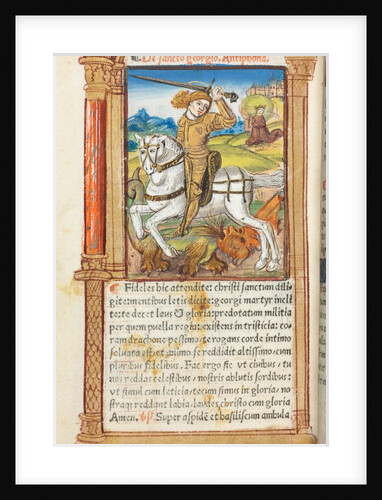 De sancto georgio. Antiphona.
Fideles hic attendite: christi sanctum dili
git ermentibus letis dicite: georgi martyr incli
te te decet laus & gloria: predotatum militia
per quem puella regia: existens in tristicia: co
ram drachone pessimo: te rogans corde intimo
soluata est: et animo se reddidit altissimo: cum
pluribus fidelibus. Fac ergo sic vt ciuibus: iu
nos reddas celestibus: nostris ablutis sordibus:
vt simul cum leticia: tecum simus in gloria: no
straq; reddant labia: laudes christo cum gloria
Amen. Super aspidẽ et basiliscum ambula.